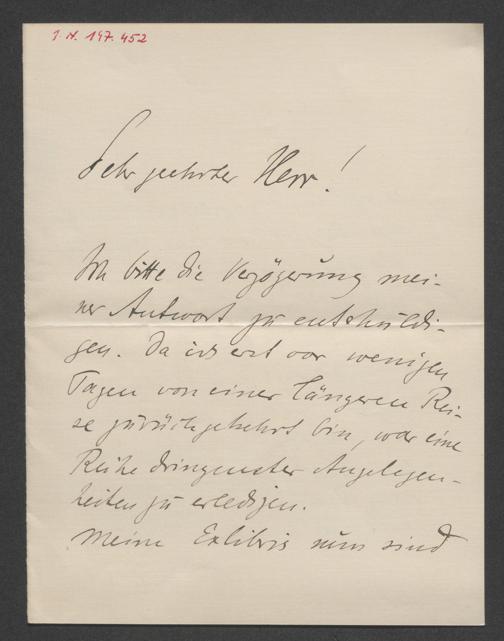 I. N. 197.452
Sehr geehrter Herr!
Ich bitte die Verzögerung mei-
ner Antwort zu entschuldi-
gen. Da ich erst vor wenigen
Tagen von einer längeren Rei-
se zurückgekehrt bin, war eine
Reihe dringenster Angelegen-
heiten zu erledigen.
Meine Exlibris nun sind